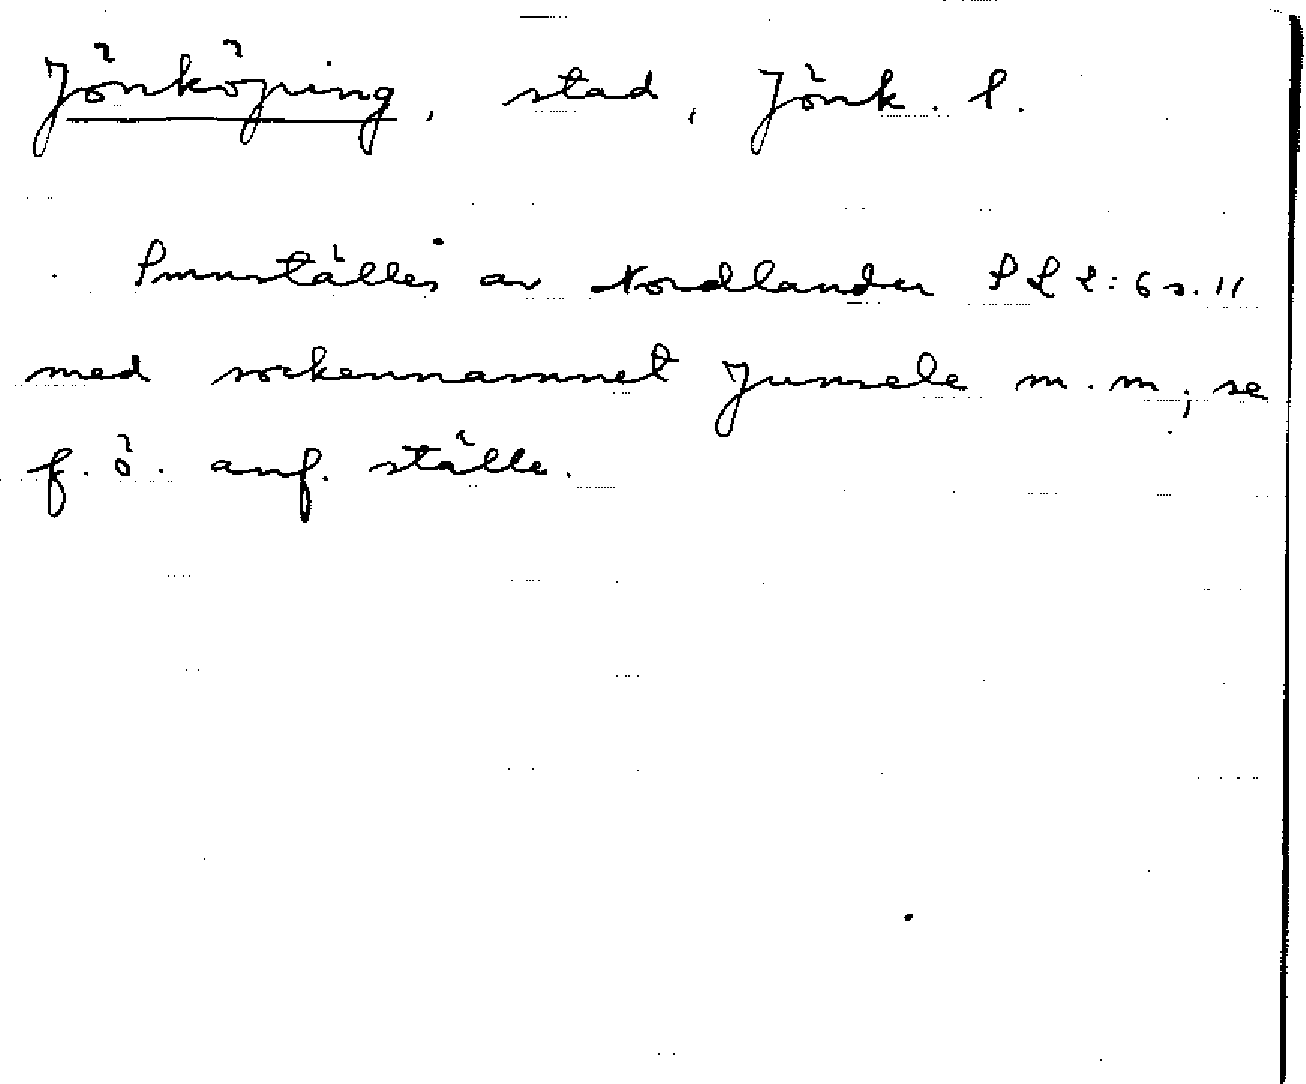 Jönköping, stad, Jönk. l.
Smnställes av Nordlander SL 2:6 s. 11
med sockennamnet Junsele m.m; se
f. ö. anf. ställe.